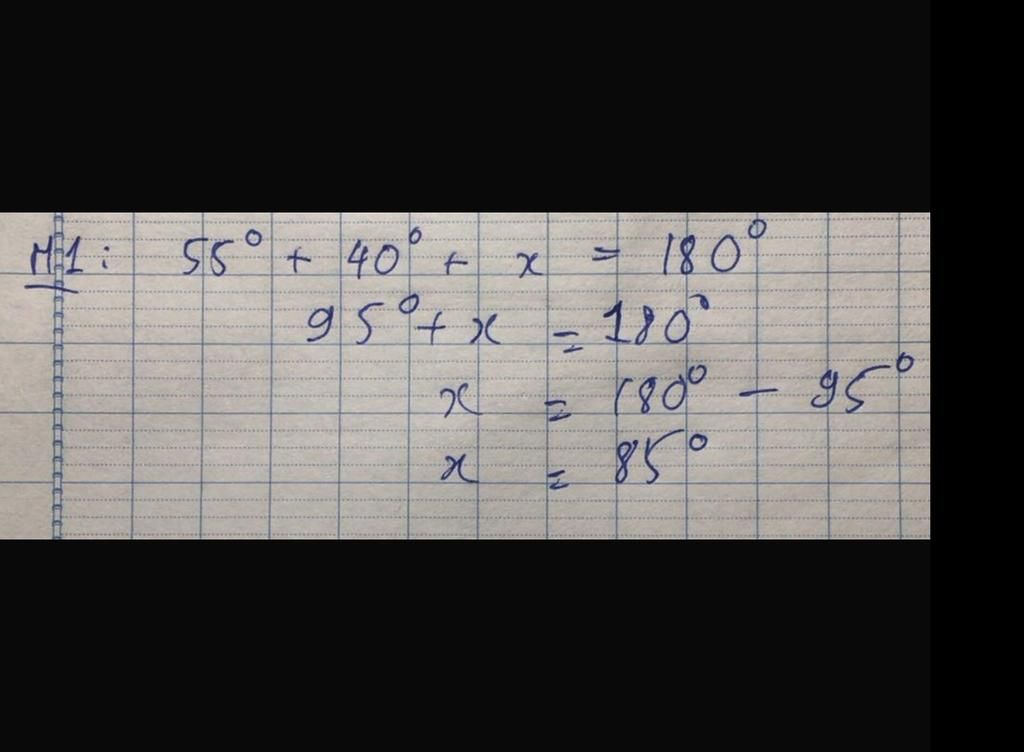 H1: 55° + 40° + x = 180°
95° + x = 180°
x = 180° - 95°
x = 85°